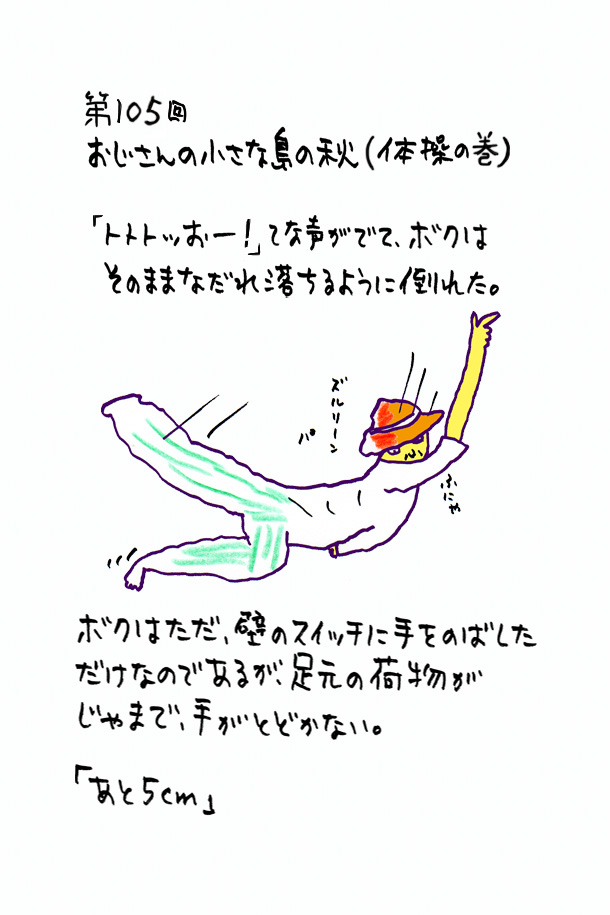 第105回
おじさんの小さな島の秋(体操の巻)
「トトトッおー!」てな声がでて、ボクは
そのままなだれ落ちるように倒れた。
ズルリーン
パ
ふにゃ
ボクはただ、壁のスイッチに手をのばした
だけなのであるが、足元の荷物が
じゃまで、手がとどかない。
「あと5cm」